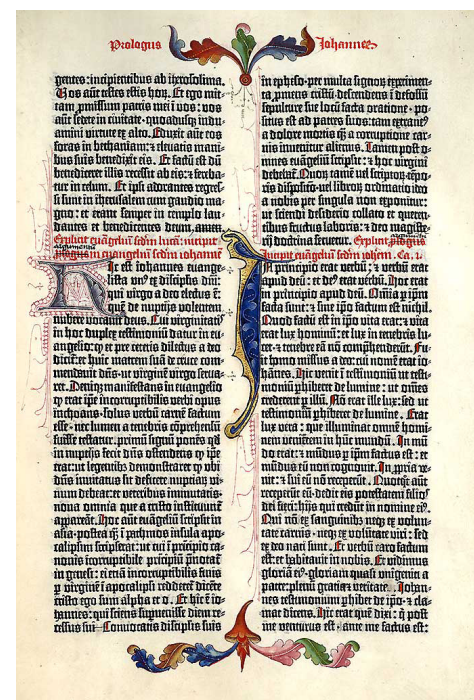 Prologus
Iohannes
gentes: incipientibus ab iherosolima.
Vos aūt testes estis horū. Et ego mit-
tam promissum patris mei ī vos: vos
aūt sedete in civitate · quoadusq; indu-
amini virtute ex alto. Eduxit aūt eos
foras in bethaniam: et elevatis mani-
bus suis benedixit eis. Et factū est dū
benediceret illis recessit ab eis: et ferebat-
tur in celum. Et ipsi adorantes regres-
si sunt in iherusalem cum gaudio ma-
gno: et erant semper in templo lau-
dantes et benedicentes deum. amen.
Explicit euāgeliū scdm lucā: incipit
prologus in euangeliū scdm iohannē
Hic est iohannes euange-
lista un9 ex discipulis dni:
qui virgo a deo electus ē:
quē de nuptijs volentem
nubere vocavit deus. Cui virginitatis
in hoc duplex testimoniū datur in eu-
angelio: q et pre ceteris dilectus a deo
dicit: et huic matrem suā de cruce com-
mendavit dns · ut virginē virgo serva-
ret. Deniq; manifestans in euangelio
q erat ipe incorruptibilis verbi opus
inchoans · solus verbū carnē factum
esse · nec lumen a tenebris cōprehensū
fuisse testatur. primū signū ponēs qd
in nuptijs fecit dns ostendens q ipe
erat: ut legentibus demonstraret q ubi
dns invitatus sit deficere nuptiarū vi-
num debeat: et veteribus immutatis ·
nova omnia que a cristo instituunt
appareāt. Hoc aūt euāgeliū scripsit in
asia · postea q ī pathmos insula apo-
calipsim scripserat: ut cui ī principio ca-
nonis incorruptibile principiū pnotat
in genesi: ei etiā incorruptibilis finis
p virginē ī apocalipsi redderet dicēte
cristo ego sum alpha et o. Et hic ē io-
hannes: qui sciens supervenisse diem re-
cessus sui · Convocatis discipulis suis
in epheso · per multa signorū experimen-
ta promens cristū · descendens ī defossū
sepulture sue locū facta oratione · po-
situs est ad patres suos: tam extrane9
a dolore mortis q a corruptione car-
nis invenitur alienus. Tamen post o-
mnes euāgeliū scripsit: et hoc virgini
debebat. Quorū tamē vel scriptorū tempo-
ris dispositio · vel librorū ordinatio ideo
a nobis per singula non exponitur:
ut sciendi desiderio collato et querenti-
bus fructus laboris: et deo magiste-
rij doctrina servetur. Explicit prologus
Incipit euāgeliū scdm iohem. Ca. i.
In principio erat verbū: et verbū erat
apud deū: et de9 erat verbū. Hoc erat
in principio apud deū. Omia p ipm
facta sunt: et sine ipo factum est nichil.
Quod factū est in ipo vita erat: et vita
erat lux hominū: et lux in tenebris lu-
cet · et tenebre eā nō comphenderūt. Fu-
it homo missus a deo: cui nomē erat io-
hānes. Hic venit ī testimoniū ut testi-
moniū phiberet de lumine: ut omnes
crederent p illū. Nō erat ille lux: sed ut
testimoniū phiberet de lumine. Erat
lux vera: que illuminat omnē homi-
nem venientem in hūc mundū. In mū-
do erat: et mūdus p ipm factus est: et
mūdus eū non cognovit. In ppria ve-
nit: et sui eū nō receperūt. Quotqt aūt
receperūt eū: dedit eis potestatem filios
dei fieri: hijs qui credunt in nomine ei9.
Qui nō ex sanguinibus neq; ex volun-
tate carnis · neq; ex volūtate viri: sed
ex deo nati sunt. Et verbū caro factum
est: et habitavit in nobis. Et vidimus
gloriā ei9 · gloriam quasi unigeniti a
patre: plenū gratia et veritate. Iohan-
nes testimonium phibet de ipo · et cla-
mat dicens. Hic erat quē dixi: q post
me venturus est · ante me factus est: